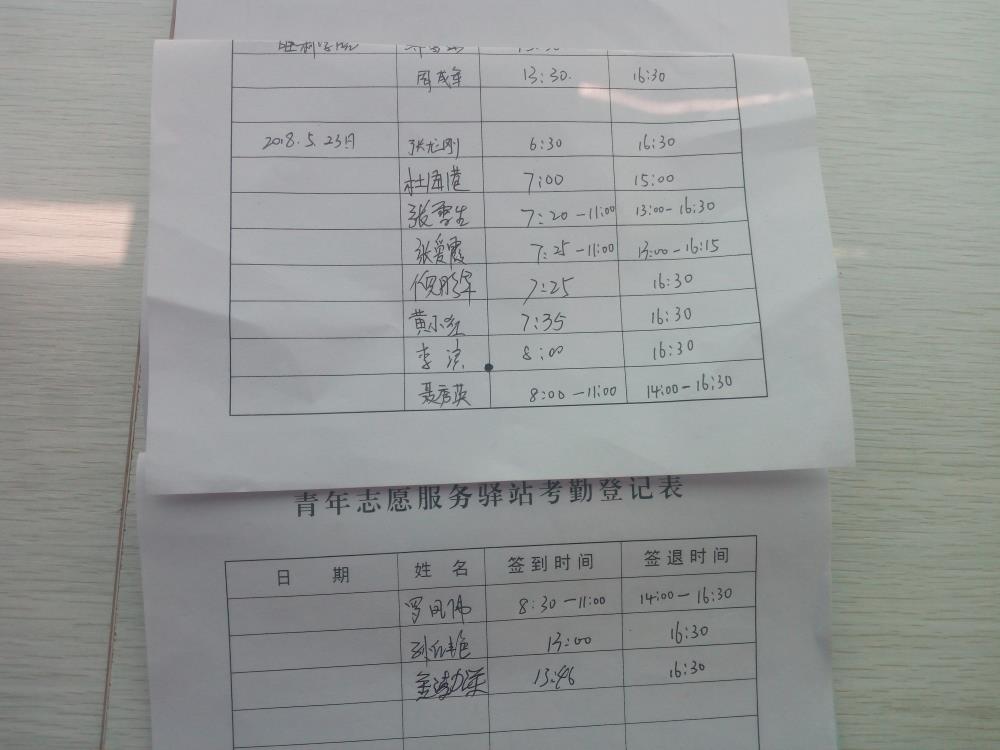 周成军 13:30. 16:30
2018.5.23日 张龙刚 6:30 16:30
7:00 15:00
张雪生 7:20-11:00 13:00-16:30
张爱霞 7:25-11:00 13:00-16:15
7:25 16:30
黄小红 7:35 16:30
李 8:00 16:30
聂秀英 8:00-11:00 14:00-16:30
青年志愿服务驿站考勤登记表
日 期 姓 名 签到时间 签退时间
罗凤伟 8:30-11:00 14:00-16:30
13:00 16:30
13:46 16:30